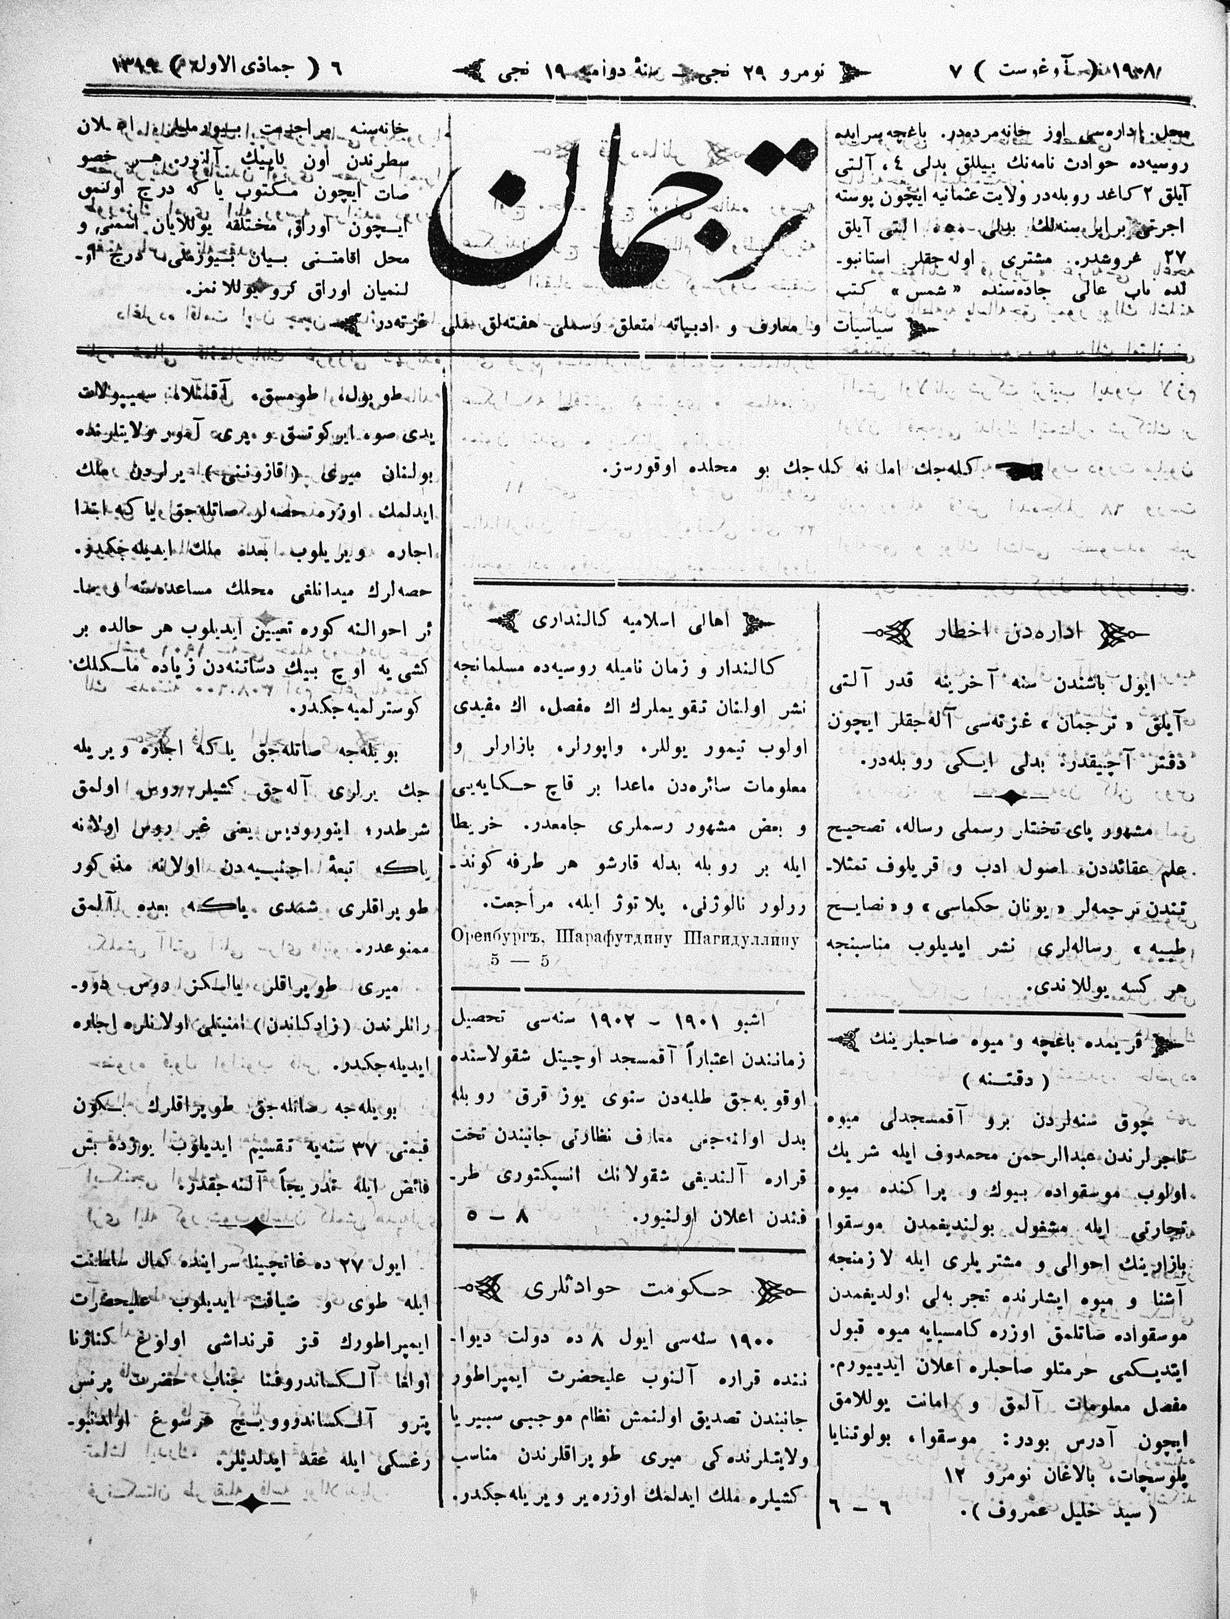 ٧ ( آوغوست )
نومرو ٢٩ نجی — سنۀ دوامیه ١٩ نجی
٦ ( جماذی الاول )
محل اداره‌سی اوز خانه‌مزده‌در. باغچه‌سرایده
روسیه‌ده حوادث نامه‌نك ییللق بدلی ٤، آلتی
آیلق ٢ كاغد روبله‌در ولایت عثمانیه ایچون پوسته
اجرتی برابر سنه‌لك بدلی التی آیلق
٢٧ غروشدر. مشتری اوله‌جقلر استانبو-
لده باب عالی جاده‌سنده «شمس» كتب
خانه‌سنه مراجعت بیورملی. اعلان
سطرندن اون كاپیك آلنور. هر خصو
صات ایچون مكتوب یا كه درج اولنمق
ایچون اوراق مختلفه یوللایان اسمنی و
محل اقامتنی بیان بیورملی. درج او-
لنمیان اوراق كرو یوللانمز.
ترجمان
سیاسیات و معارف و ادبیاته متعلق رسملی هفته‌لق ملی غزته‌در
كله‌جك امل نه كله‌جك بو محلده اوقورسز.
اداره‌دن اخطار
ایول باشندن سنه آخرینه قدر آلتی
آیلق «ترجمان» غزته‌سی آله‌جقلر ایچون
دفتر آچیقدر؛ بدلی ایكی روبله‌در.
مشهور پای تختلر رسملی رساله، تصحیح
علم عقائددن، اصول ادب و قریلوف تمثلا-
تندن ترجمه‌لر «یونان حكماسی» و «نصایح
طبیه» رساله‌لری نشر ایدیلوب مناسبنجه
هر كسه یوللاندی.
قریمده باغچه و میوه صاحبلرینك
( دقتنه )
چوق سنه‌لردن برو آقمسجدلی میوه
تاجرلرندن عبدالرحمن محمدوف ایله شریك
اولوب موسقواده بیوك و پراكنده میوه
تجارتی ایله مشغول بولندیغمدن موسقوا
بازارینك احوالی و مشتریلری ایله لازمنجه
آشنا و میوه ایشلرنده تجربه‌لی اولدیغمدن
موسقواده صاتلمق اوزره كامسیایه میوه قبول
ایتدیكمی حرمتلو صاحبلره اعلان ایدییورم.
مفصل معلومات آلمق و امانت یوللامق
ایچون آدرس بودر: موسقوا، بولوتنایا
پلوسچات، بالاغان نومرو ١٢
( سید خلیل عمروف ). ٦ — ٦
اهالی اسلامیه كالنداری
كالندار و زمان نامیله روسیه‌ده مسلمانجه
نشر اولنان تقویملرك اك مفصل، اك مفیدی
اولوب تیمور یوللر، واپورلر، بازارلر و
معلومات سائره‌دن ماعدا بر قاچ حكایه‌یی
و بعض مشهور رسملری جامعدر. خریطا
ایله بر روبله بدله قارشو هر طرفه كوند-
ررلور نالوژنی، پلاتوژ ایله. مراجعت.
Оренбургъ, Шарафутдину Шагидуллину
5 — 5
اشبو ١٩٠١ - ١٩٠٢ سنه‌سی تحصیل
زمانندن اعتباراً آقمسجد اوچیتل شقولاسنده
اوقویه‌جق طلبه‌دن سنوی یوز قرق روبله
بدل اولنه‌جغی معارف نظارتی جانبندن تحت
قراره آلندیغی شقولانك انسپكتوری طر-
فندن اعلان اولنیور. ٨ — ٥
حكومت حوادثلری
١٩٠٠ سنه‌سی ایول ٨ ده دولت دیوا-
ننده قراره آلنوب علیحضرت ایمپراطور
جانبندن تصدیق اولنمش نظام موجبی سیبیریا
ولایتلرنده‌كی میری طوپراقلرندن مناسب
كشیلره ملك ایدلمك اوزره یر ویریله‌جكدر.
طوبول، طومسق، آقمللا، سمیپولات
یدی صوه ایركوتسق و پری آمور ولایتلرنده
بولنان میری (قازوننی) یرلردن ملك
ایدلمك اوزره حصه‌لر صاتله‌جق یا كه ابتدا
اجاره ویریلوب بعده ملك ایدیله‌جكدر.
حصه‌لرك میدانلغی محللك مساعده‌سنه و سا-
ئر احوالنه كوره تعیین ایدیلوب هر حالده بر
كشی یه اوچ بیك دساتنه‌دن زیاده ماسكللك
كوسترلمیه‌جكدر.
بویله‌جه صاتله‌جق یا كه اجاره ویریله
جك یرلری آله‌جق كشیلر روس اولمق
شرطدر؛ اینورودیس یعنی غیر روس اولانه
یاكه تبعۀ اجنبیه‌دن اولانه مذكور
طوپراقلری شمدی یاكه بعده آلمق
ممنوعدر.
میری طوپراقلر یالكز روس دوو-
رانلرندن (زادكاندن) امنیتلی اولانلره اجاره
ایدیله‌جكدر.
بویله‌جه صاتله‌جق طوپراقلرك بكون
قیمتی ٣٧ سنه‌یه تقسیم ایدیلوب یوزده بش
فائض ایله تدریجاً آلنه‌جقدر.
ایول ٢٧ ده غاتچینا سراینده كمال سلطنت
ایله طوی و ضیافت ایدیلوب علیحضرت
ایمپراطورك قز قرنداشی اولوغ كناژنا
اولغا آلكساندروفنا جناب حضرت پرنس
پترو آلكساندروویچ غرسوغ اولدنبو-
رغسكی ایله عقد ایدلدیلر.